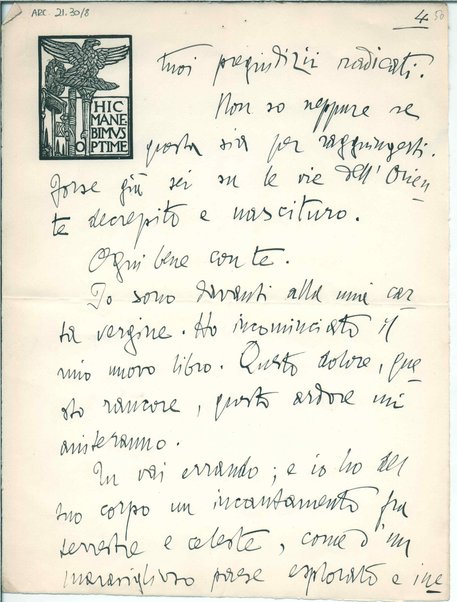 ARC. 21.30/8
4 50
HIC
MANE
BIMVS
OPTIME
tuoi pregiudizii radicati.
Non so neppure se
questa sia per raggiungerti.
Forse già sei su le vie dell'Orien-
te decrepito e nascituro.
Ogni bene con te.
Io sono davanti alla mia car-
ta vergine. Ho incominciato il
mio nuovo libro. Questo dolore, que-
sto rancore, questo ardore mi
aiuteranno.
Tu vai errando; e io ho del
tuo corpo un incantamento fra
terrestre e celeste, come d'un
maraviglioso paese esplorato e ine